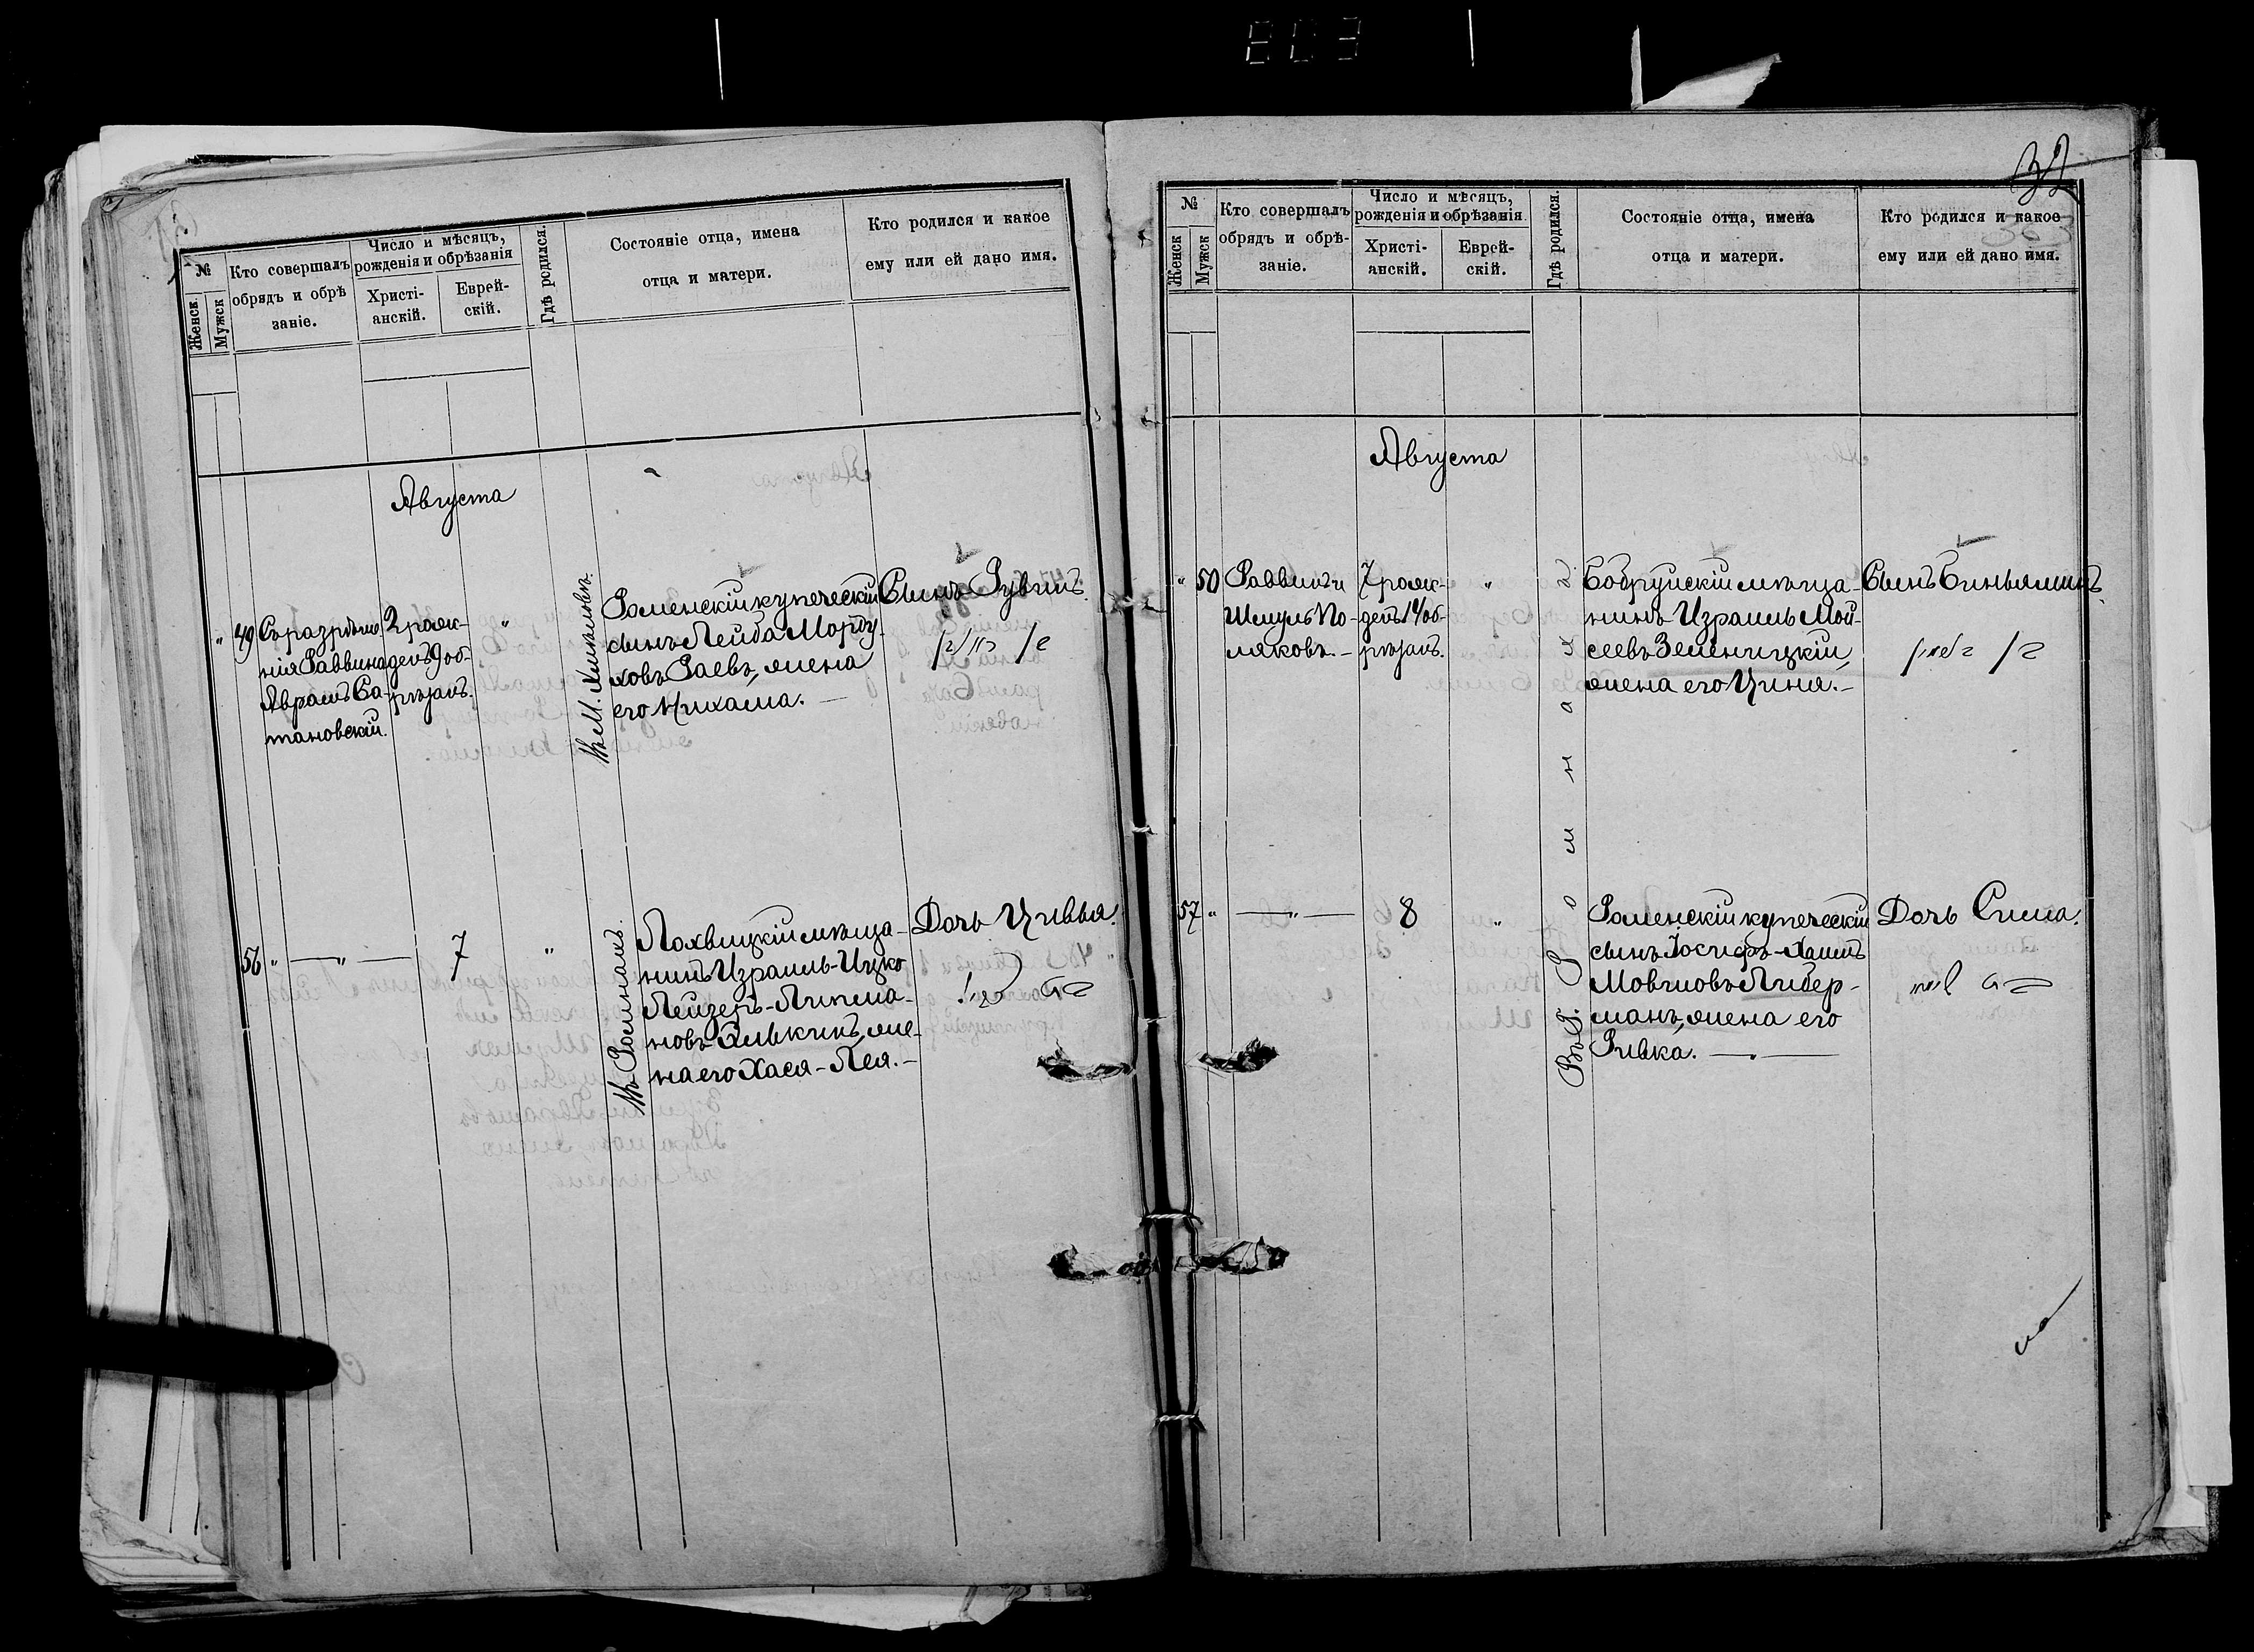 803
№
Женск
Мужск
Кто совершалъ
обрядъ и обрѣ
заніе.
Число и мѣсяцъ,
рожденія и обрѣзанія
Христі-
анскій.
Еврей-
скій.
Гдѣ родился.
Состояніе отца, имена
отца и матери.
Кто родился и какое
ему или ей дано имя.
Августа
" 49
Съ разрѣше
нія Раввина
Абрамъ Са-
тановскій.
2 рож-
денъ 9 об-
рѣзанъ.
"
Въ М.
Роменскій купеческій
сынъ Лейба Морду
ховъ Раевъ, жена
его Нихама. —
Сынъ Рувимъ.
בן
56 "
— " —
7
"
Въ Ромнахъ.
Лохвицкій мѣща-
нинъ Израиль-Ицко
Лейзеръ-Липма-
новъ Элькинъ, же-
на его Хася-Лея. —
Дочь Цивья.
בת
32
363
№
Женск
Мужск
Кто совершалъ
обрядъ и обрѣ-
заніе.
Число и мѣсяцъ,
рожденія и обрѣзанія
Христі-
анскій.
Еврей-
скій.
Гдѣ родился.
Состояніе отца, имена
отца и матери.
Кто родился и какое
ему или ей дано имя.
Августа
" 50
Раввинъ
Шмуль По-
ляковъ. —
7 рож-
денъ 14 об-
рѣзанъ.
"
Въ Г. Ромнахъ
Бобруйскій мѣща-
нинъ Израиль Мой-
сеевъ
жена его Цина. —
Сынъ Биньяминъ
בן
57 "
— " —
8
"
Роменскій купеческій
сынъ Іосифъ-Хаимъ
Мовшовъ Либер-
манъ, жена его
Ривка. —
Дочь Сима.
בת